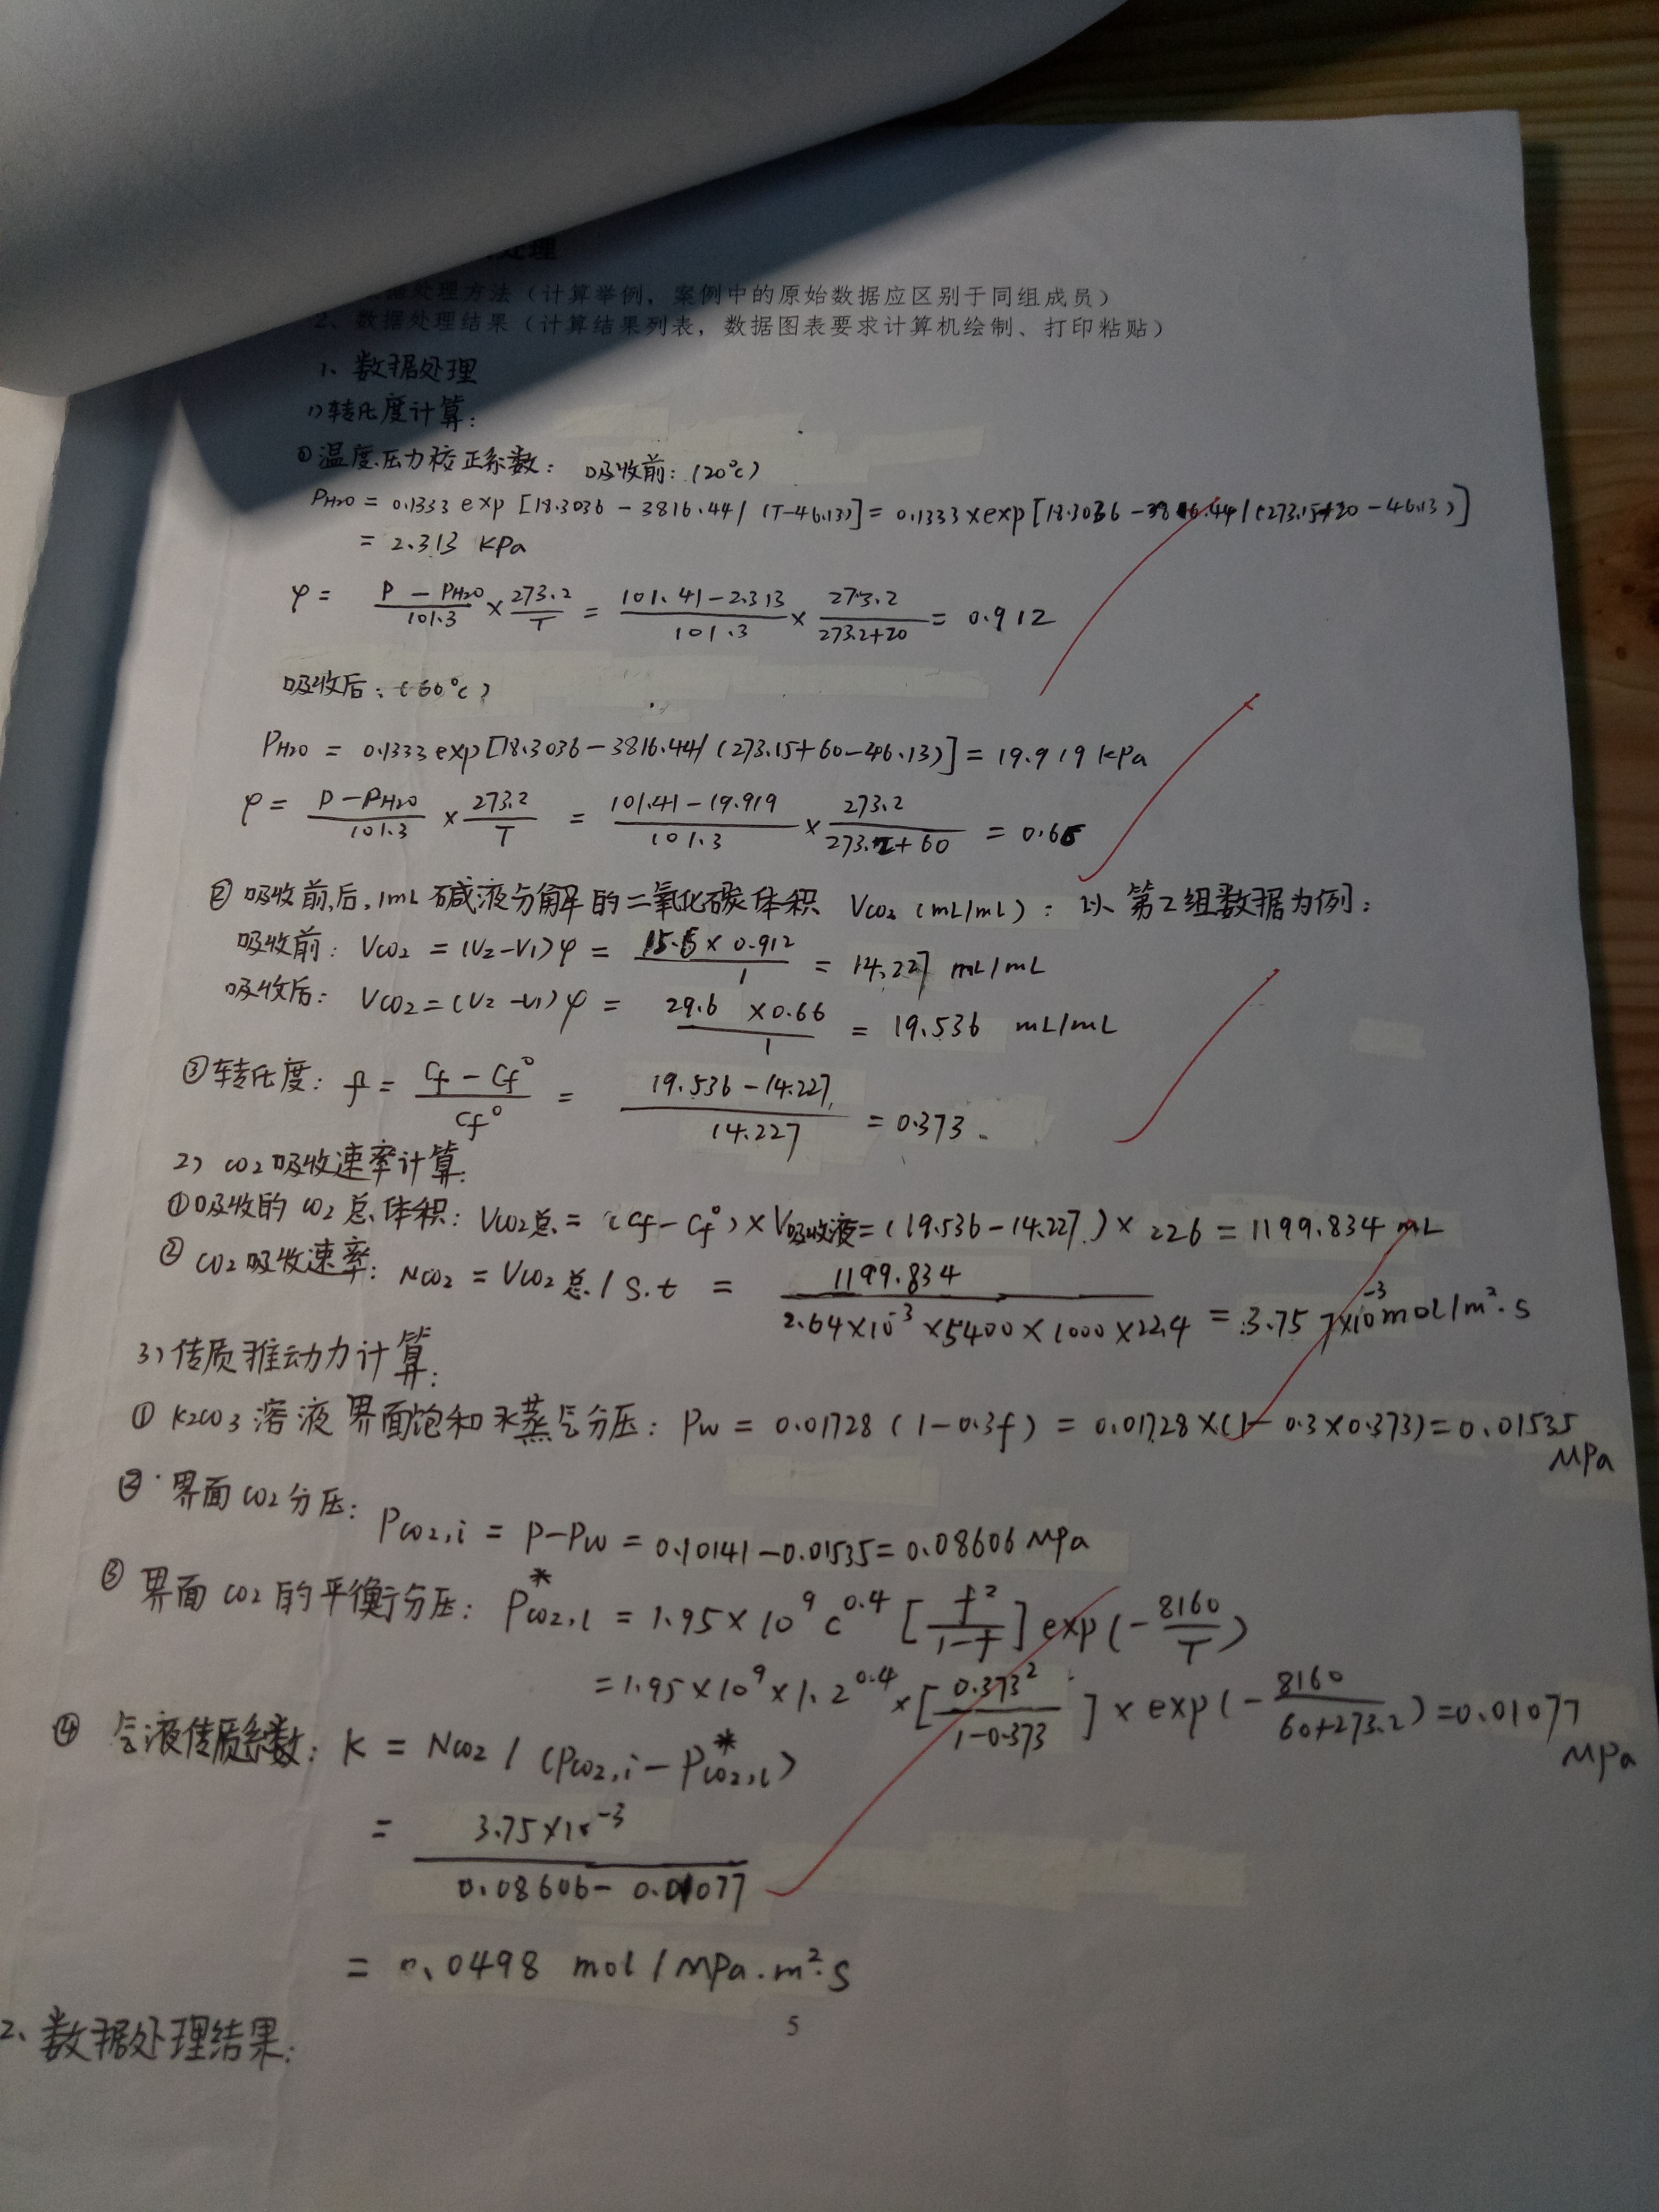 处理
据处理方法（计算举例，案例中的原始数据应区别于同组成员）
2、数据处理结果（计算结果列表，数据图表要求计算机绘制、打印粘贴）
1、数据处理
1)转化度计算：
①温度、压力校正系数： 吸收前：(20℃)
PH2O = 0.1333 exp [18.3036 - 3816.44 / (T-46.13)] = 0.1333 × exp [18.3036 - 3816.44 / (273.15+20-46.13)]
= 2.313 KPa
φ = (P - PH2O)/101.3 × 273.2/T = (101.41-2.313)/101.3 × 273.2/(273.2+20) = 0.912
吸收后：(60℃)
PH2O = 0.1333 exp [18.3036 - 3816.44 / (273.15+60-46.13)] = 19.919 KPa
φ = (P - PH2O)/101.3 × 273.2/T = (101.41-19.919)/101.3 × 273.2/(273.2+60) = 0.66
② 吸收前、后，1mL碱液分解的二氧化碳体积 VCO2 (mL/mL)：以第2组数据为例：
吸收前：VCO2 = (V2-V1)φ = (15.6 × 0.912)/1 = 14.227 mL/mL
吸收后：VCO2 = (V2-V1)φ = (29.6 × 0.66)/1 = 19.536 mL/mL
③转化度：f = (Cf - Cf°)/Cf° = (19.536-14.227)/14.227 = 0.373.
2) CO2吸收速率计算：
①吸收的CO2总体积：VCO2总 = (Cf - Cf°) × V吸收液 = (19.536-14.227) × 226 = 1199.834 mL
② CO2吸收速率：NCO2 = VCO2总 / S.t = 1199.834/(2.64×10⁻³×5400×1000×22.4) = 3.757×10⁻³ mol/m².s
3)传质推动力计算：
① K2CO3溶液界面饱和水蒸气分压：Pw = 0.01728 (1-0.3f) = 0.01728×(1-0.3×0.373) = 0.01535 MPa
② 界面CO2分压：PCO2,i = P-Pw = 0.10141-0.01535 = 0.08606 MPa
③ 界面CO2的平衡分压：P*CO2,l = 1.95×10⁹ C^0.4 [f²/(1-f)] exp(-8160/T)
= 1.95×10⁹×1.2^0.4 × [0.373²/(1-0.373)] × exp(-8160/(60+273.2)) = 0.01077 MPa
④ 气液传质系数：K = NCO2 / (PCO2,i - P*CO2,l)
= 3.75×10⁻³/(0.08606-0.01077)
= 0.0498 mol/MPa.m².S
5
2、数据处理结果：